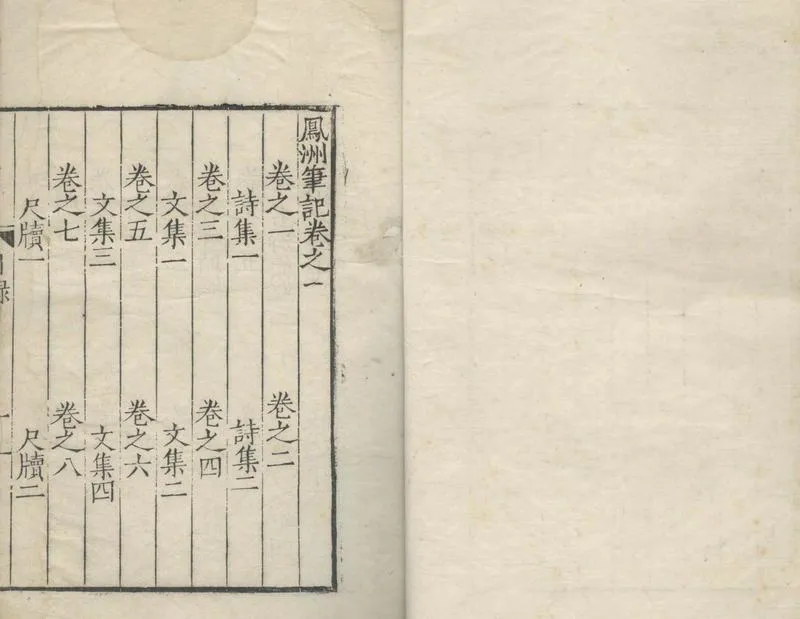 鳳洲筆記卷之一
卷之一 卷之二
詩集一 詩集二
卷之三 卷之四
文集一 文集二
卷之五 卷之六
文集三 文集四
卷之七 卷之八
尺牘一 尺牘二